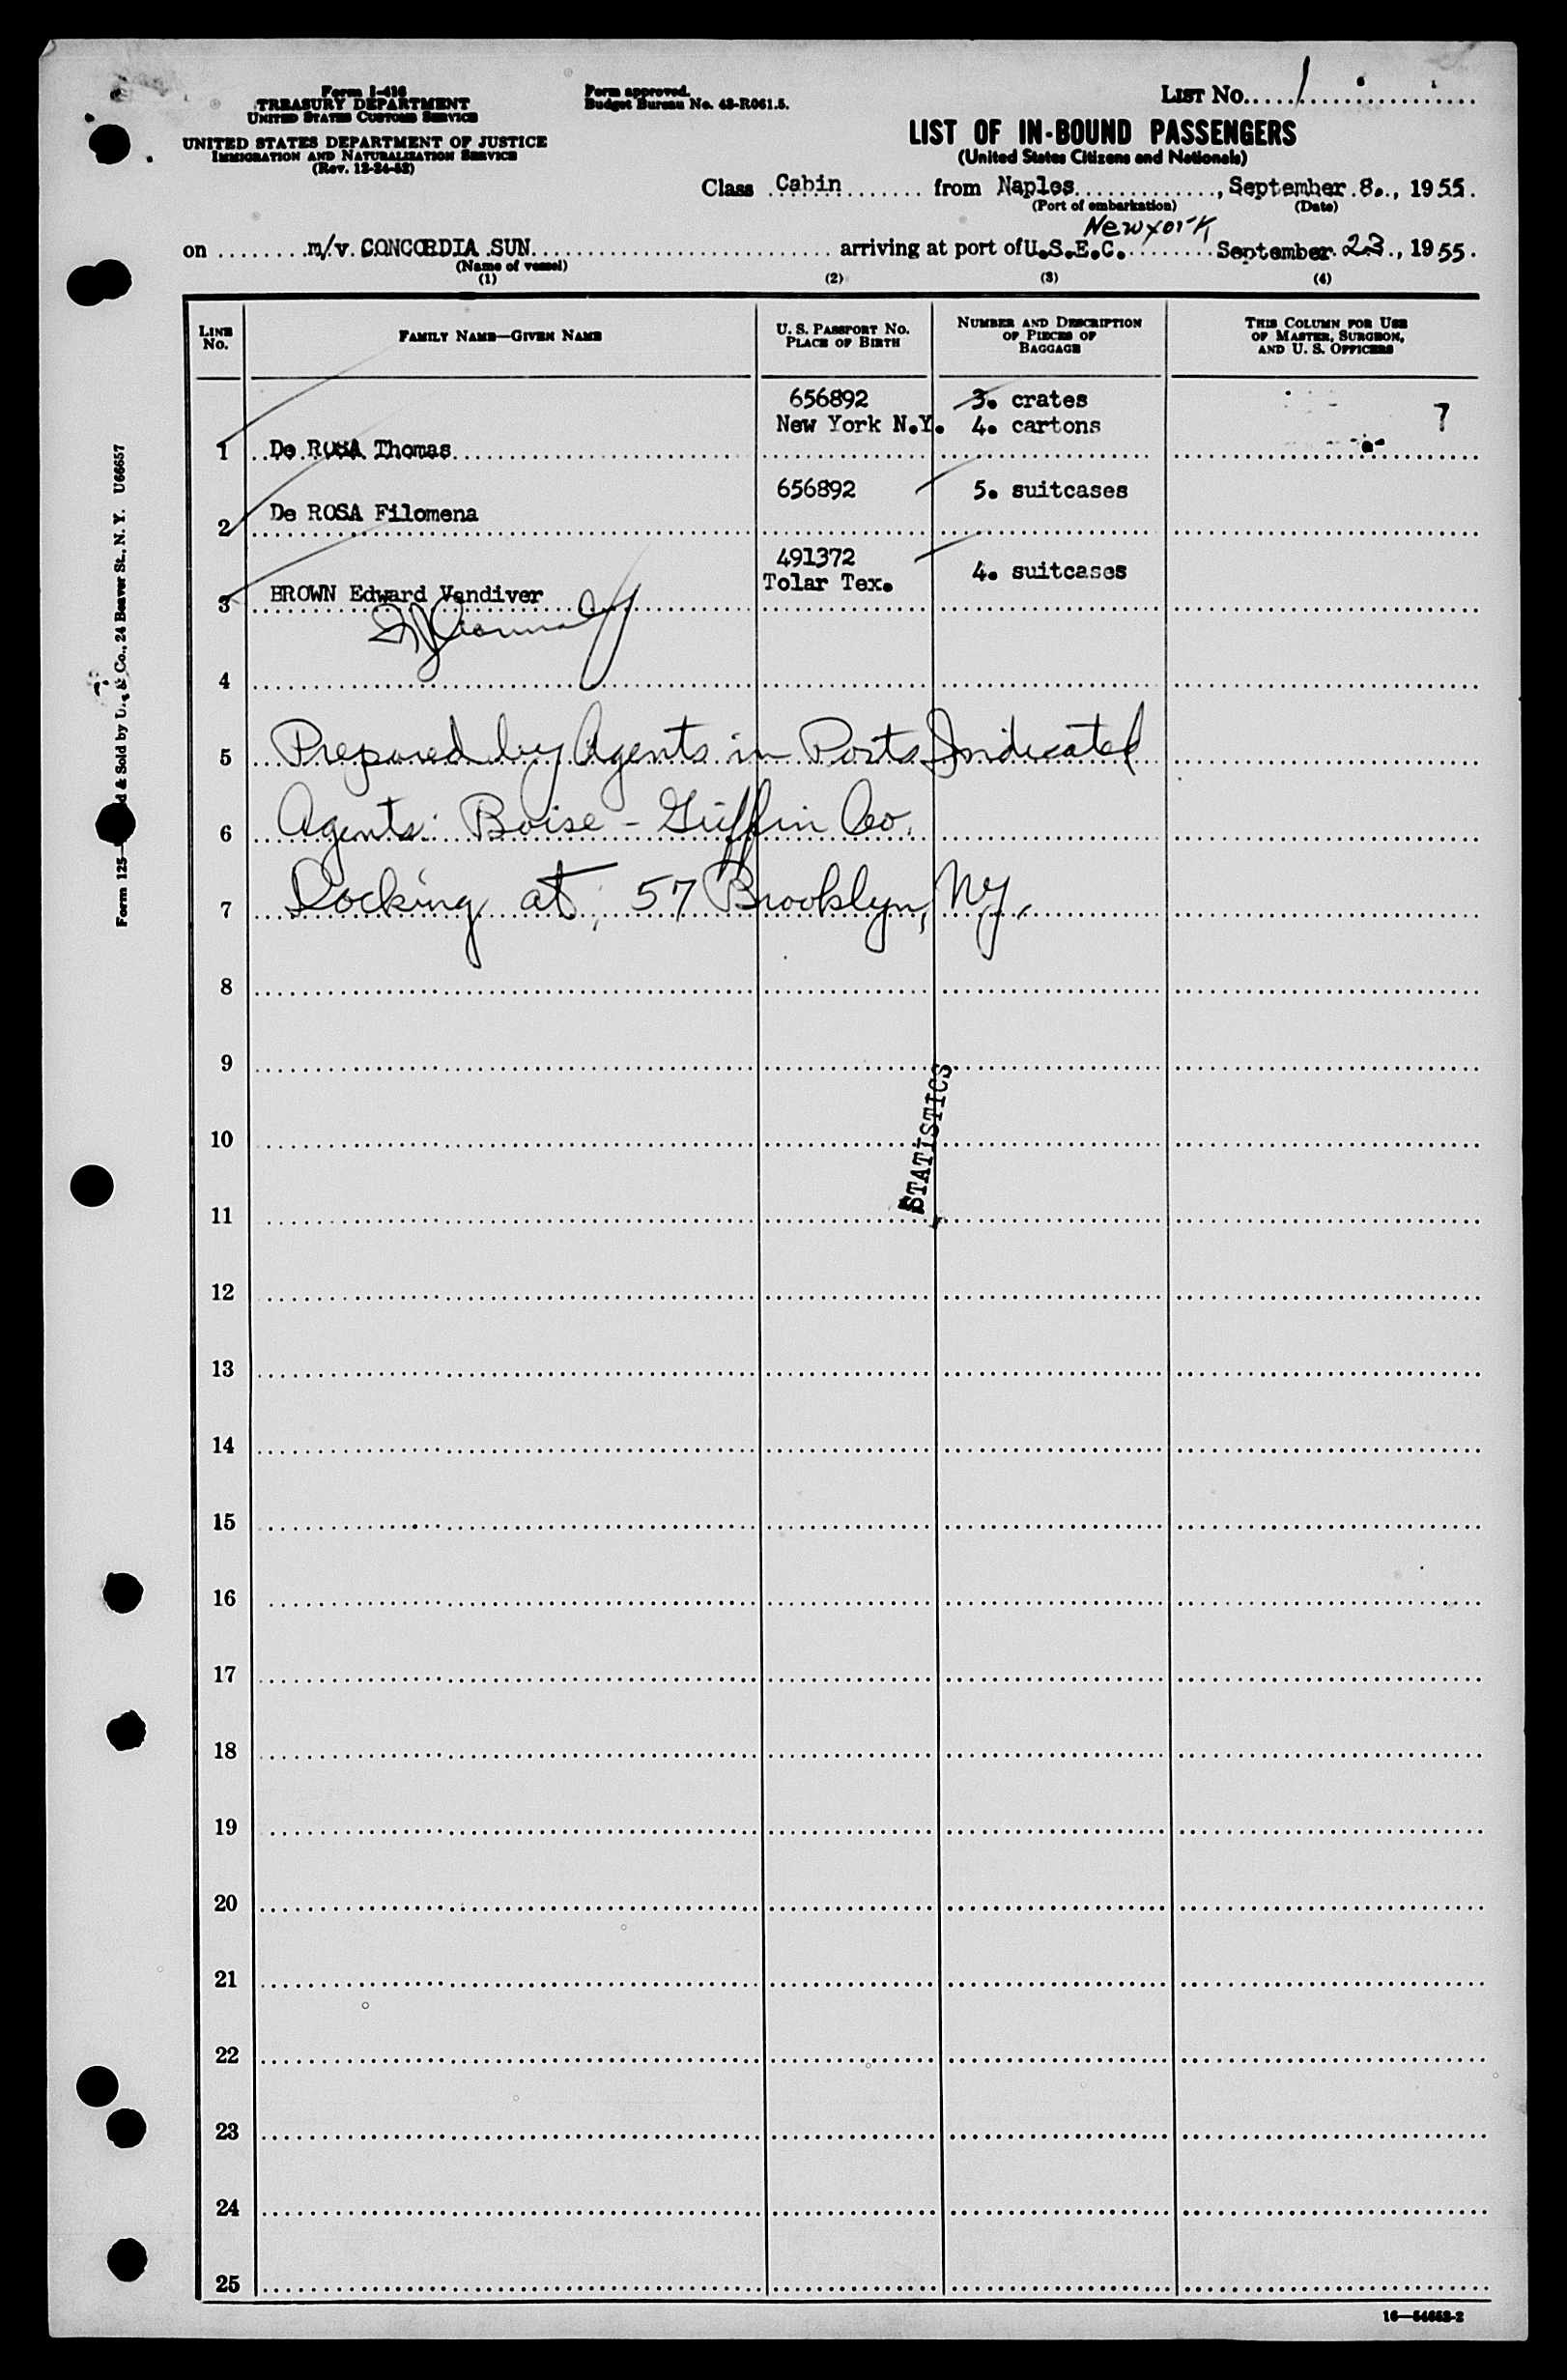 Form I-418
TREASURY DEPARTMENT
UNITED STATES CUSTOMS SERVICE
UNITED STATES DEPARTMENT OF JUSTICE
IMMIGRATION AND NATURALIZATION SERVICE
(Rev. 12-24-52)
Form approved.
Budget Bureau No. 43-R061.5.
LIST NO. 1
LIST OF IN-BOUND PASSENGERS
(United States Citizens and Nationals)
Class Cabin from Naples, September 8., 1955.
(Port of embarkation) (Date)
New York
on m/v. CONCORDIA SUN arriving at port of U.S.E.C. September 23, 1955.
(Name of vessel)
(1) (2) (3) (4)
LINE NO.
FAMILY NAME—GIVEN NAME
U. S. PASSPORT NO.
PLACE OF BIRTH
NUMBER AND DESCRIPTION
OF PIECES OF
BAGGAGE
THIS COLUMN FOR USE
OF MASTER, SURGEON,
AND U. S. OFFICERS
656892 3. crates
New York N.Y. 4. cartons 7
1 De ROSA Thomas
656892 5. suitcases
2 De ROSA Filomena
491372
Tolar Tex. 4. suitcases
3 BROWN Edward Vandiver
4
5 Prepared by Agents in Ports Indicated
6 Agents: Boise - Griffin Co.
7 Docking at, 57 Brooklyn, NY.
8
9
10
STATISTICS
11
12
13
14
15
16
17
18
19
20
21
22
23
24
25
16—54652-2
Form 125— d & Sold by & Co., 24 Beaver St., N. Y. U66657